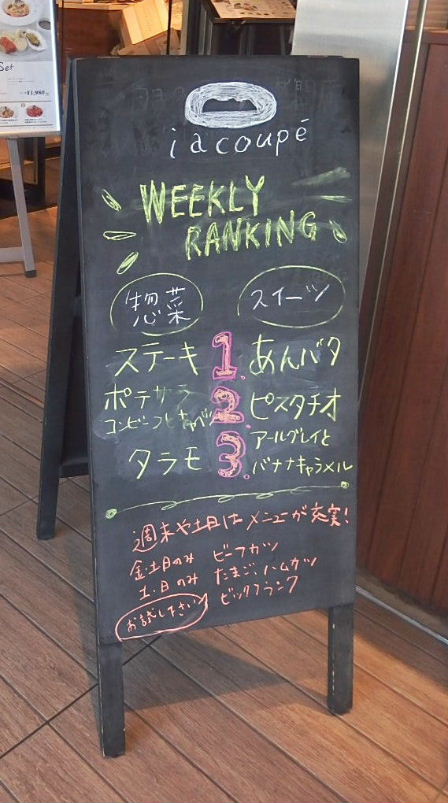 Set
iacoupé
WEEKLY
RANKING
惣菜 スイーツ
ステーキ 1. あんバタ
ポテサラ 2. ピスタチオ
コンビーフとキャベツ
タラモ 3. アールグレイと
バナナキャラメル
週末や土日はメニューが充実!
金土日のみ ビーフカツ
土.日のみ たまご、ハムカツ
お試し下さい ビックフランク